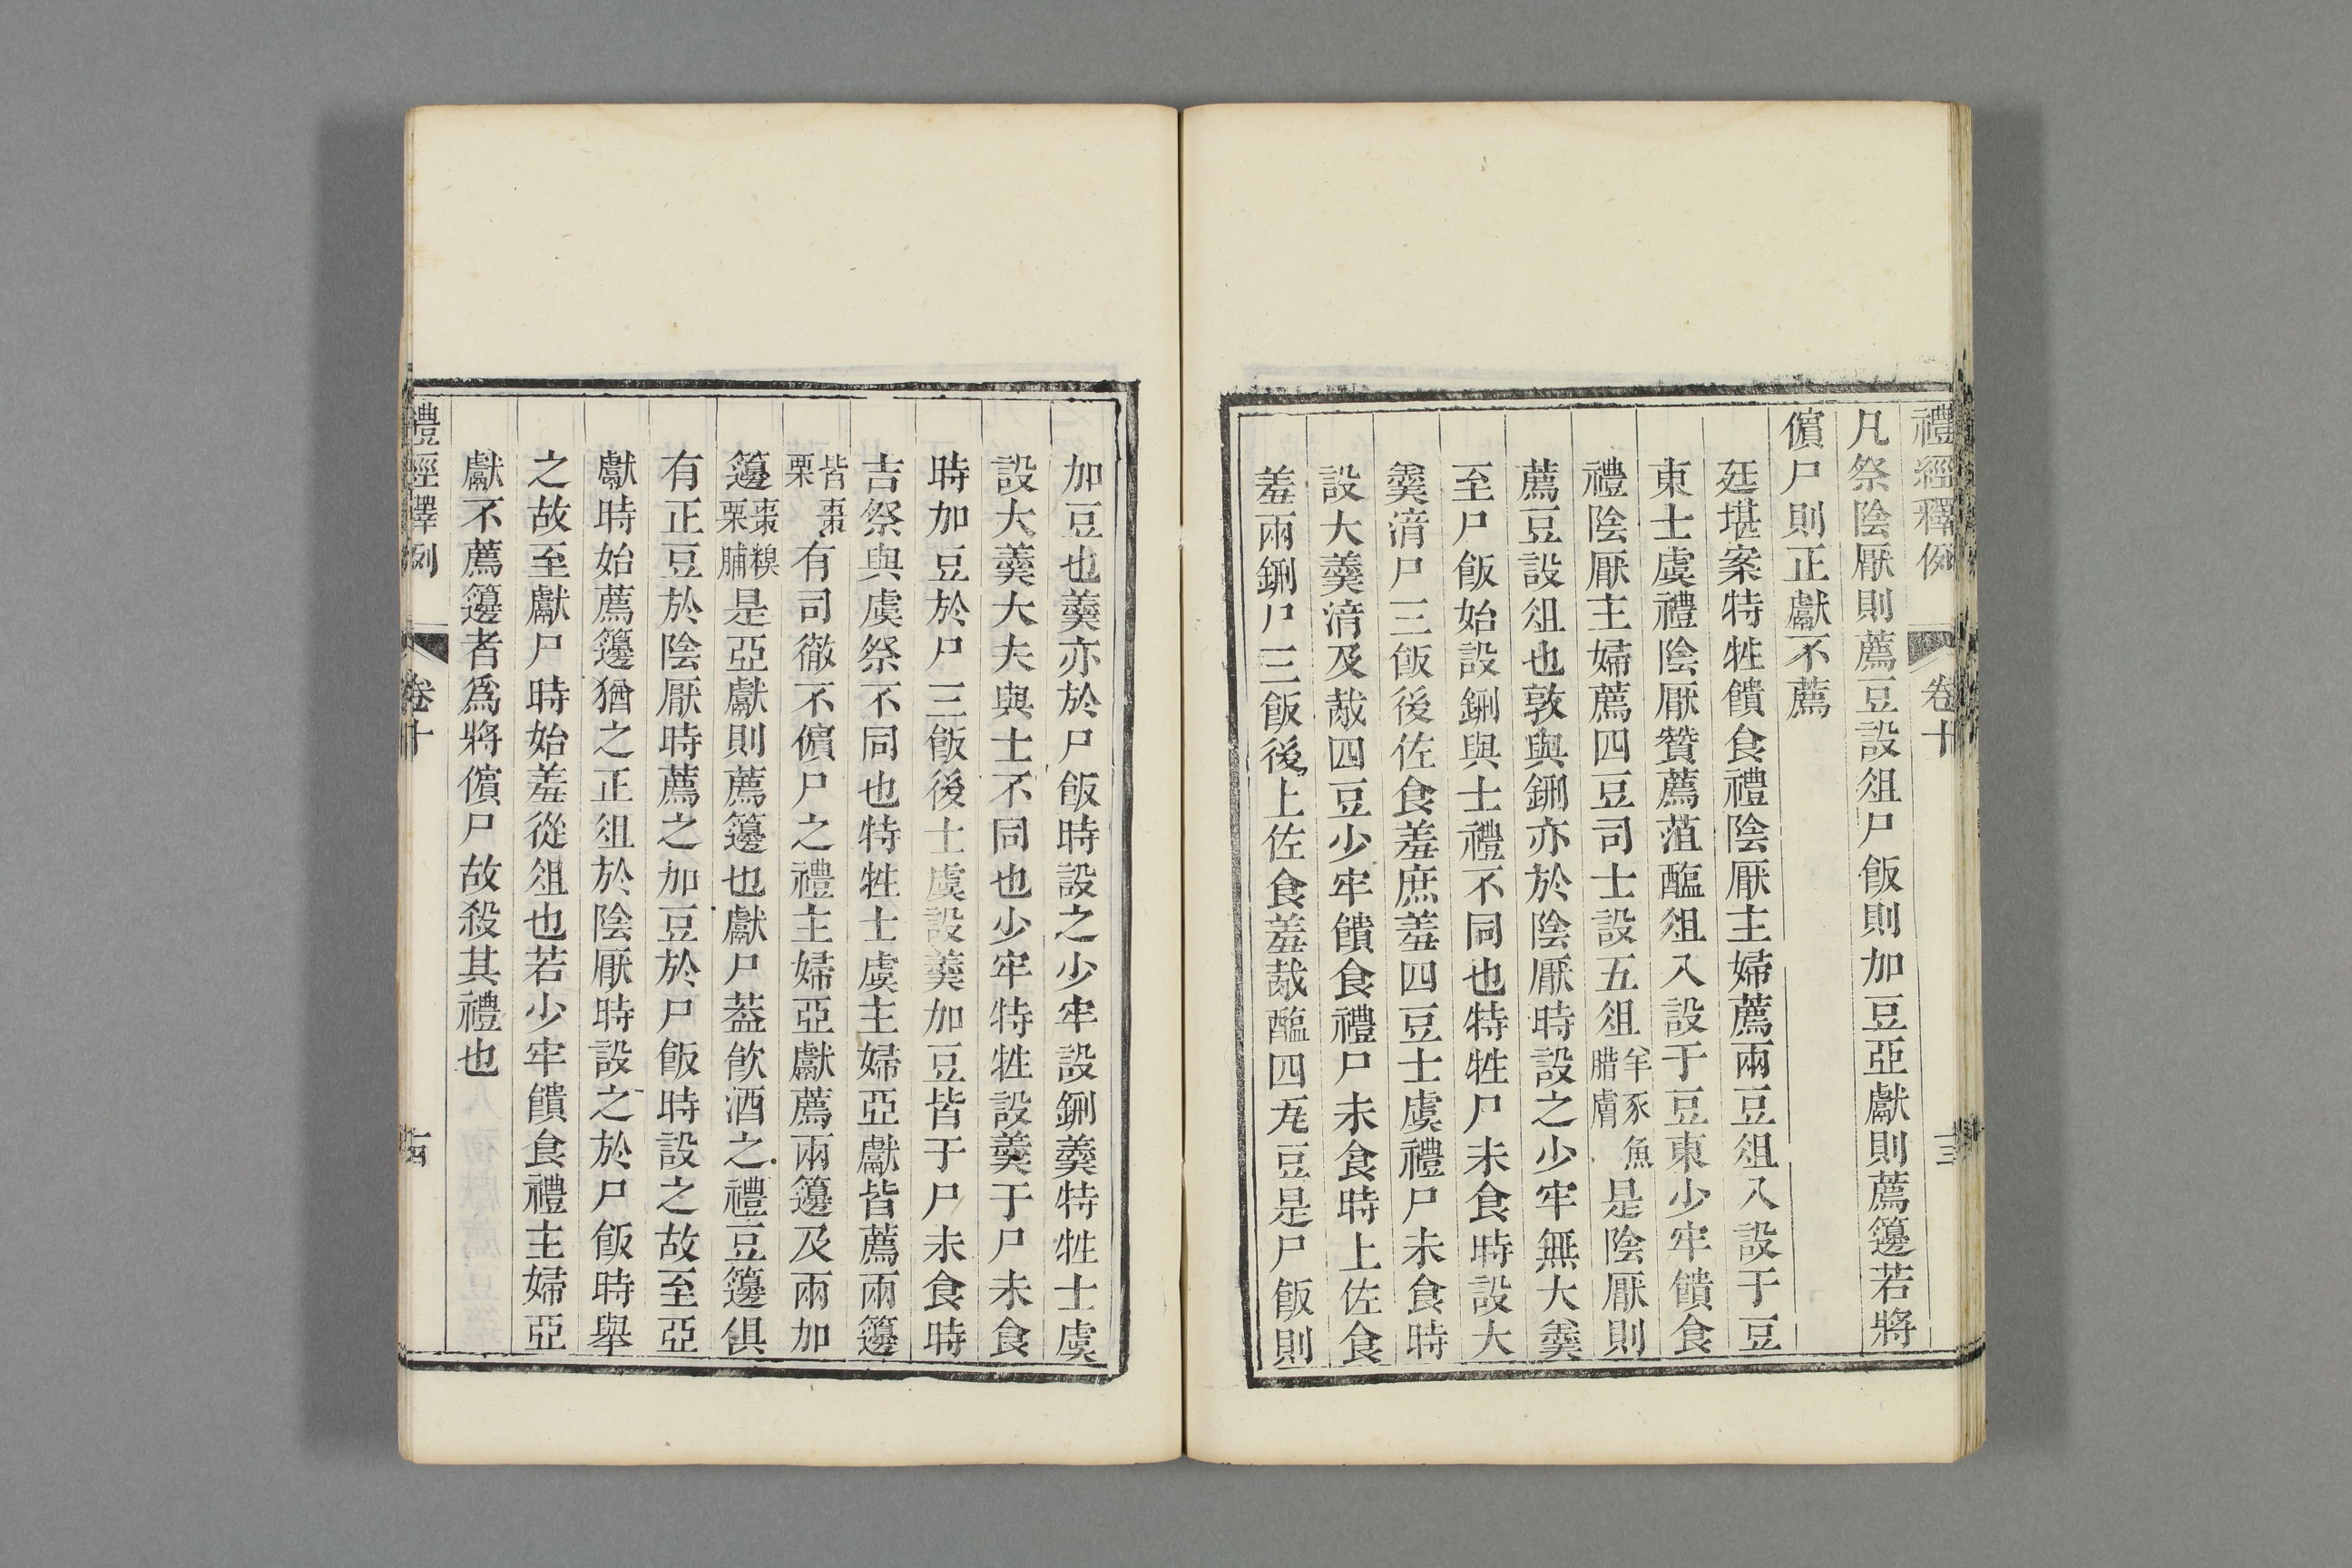 禮經釋例 卷十 三
凡祭陰厭則薦豆設俎尸飯則加豆亞獻則薦籩若將
儐尸則正獻不薦
廷堪案特牲饋食禮陰厭主婦薦兩豆俎入設于豆
東士虞禮陰厭贊薦菹醢俎入設于豆東少牢饋食
禮陰厭主婦薦四豆司士設五俎羊豕魚腊膚是陰厭則
薦豆設俎也敦與鉶亦於陰厭時設之少牢無大羹
至尸飯始設鉶與士禮不同也特牲尸未食時設大
羹湆尸三飯後佐食羞庶羞四豆士虞禮尸未食時
設大羹湆及胾四豆少牢饋食禮尸未食時上佐食
羞兩鉶尸三飯後上佐食羞胾醢四瓦豆是尸飯則
加豆也羹亦於尸飯時設之少牢設鉶羹特牲士虞
設大羹大夫與士不同也少牢特牲設羹于尸未食
時加豆於尸三飯後士虞設羹加豆皆于尸未食時
吉祭與虞祭不同也特牲士虞主婦亞獻皆薦兩籩
皆棗栗有司徹不儐尸之禮主婦亞獻薦兩籩及兩加
籩棗糗栗脯是亞獻則薦籩也獻尸葢飮酒之禮豆籩俱
有正豆於陰厭時薦之加豆於尸飯時設之故至亞
獻時始薦籩猶之正俎於陰厭時設之於尸飯時舉
之故至獻尸時始羞從俎也若少牢饋食禮主婦亞
獻不薦籩者爲將儐尸故殺其禮也
禮經釋例 卷十